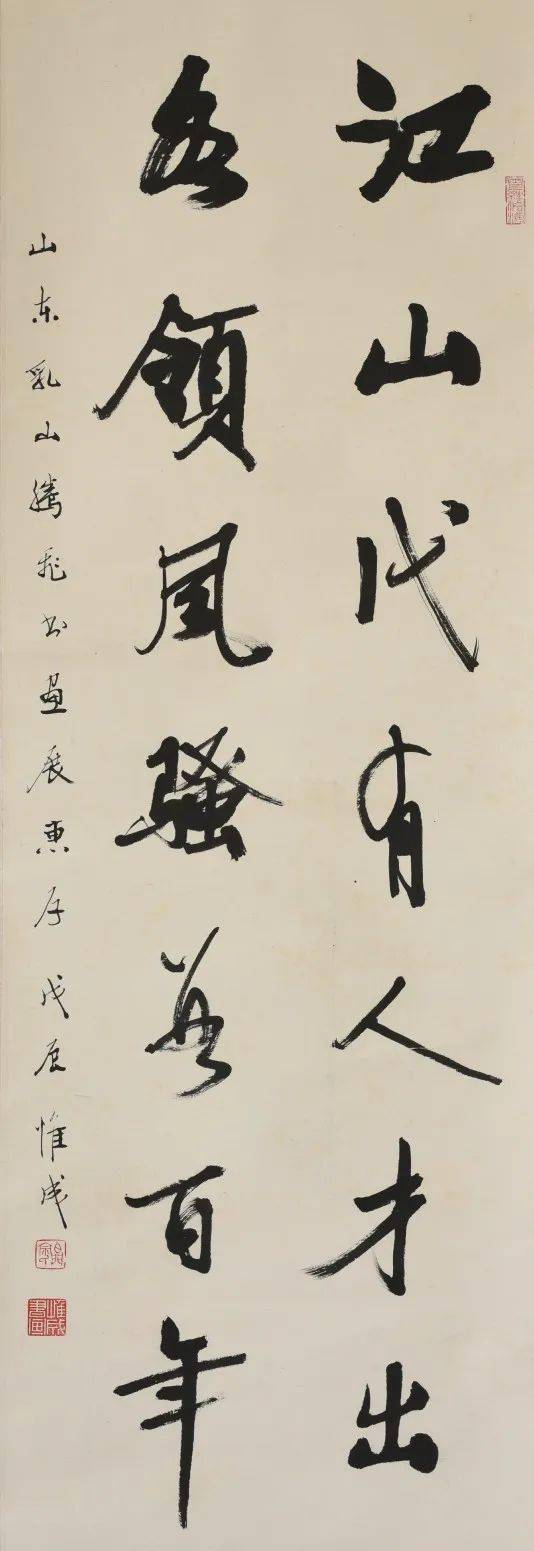 江山代有人才出
各領風騷數百年
山东乳山騰飛书畫展惠存 戊辰 惟成
惟成書画